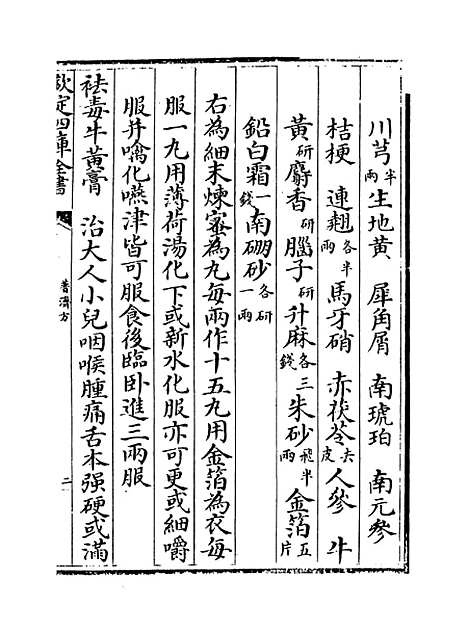 川芎半兩生地黄　犀角屑　南琥珀　南元參
桔梗　連翹各半兩馬牙硝　赤茯苓去皮人參　牛
黄研麝香研腦子研升麻各三錢朱砂飛半兩金箔五片
鉛白霜一錢南硼砂各研一兩
右為細末煉蜜為丸每兩作十五丸用金箔為衣每
服一丸用薄荷湯化下或新水化服亦可更或細嚼
服并噙化嚥津皆可服食後臨卧進三兩服
祛毒牛黄膏　治大人小兒咽喉腫痛舌本强硬或滿
欽定四庫全書
普濟方
二